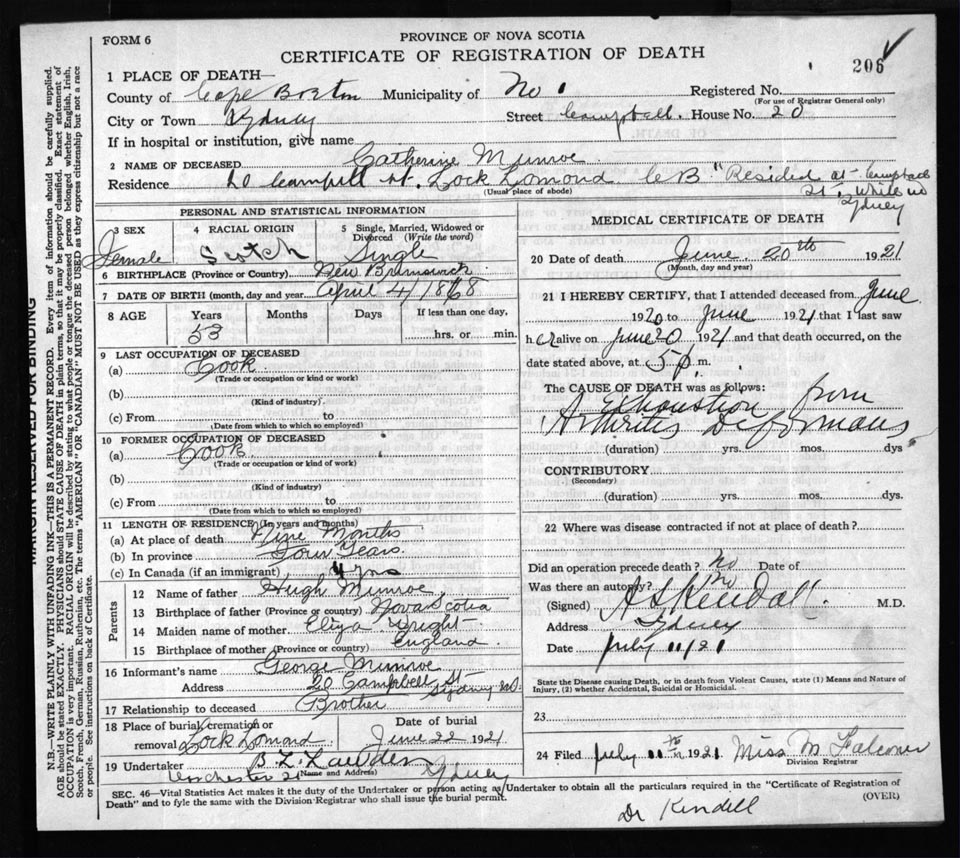 FORM 6
PROVINCE OF NOVA SCOTIA
CERTIFICATE OF REGISTRATION OF DEATH
206
1 PLACE OF DEATH—
County of Cape Breton Municipality of No 1 Registered No.
(For use of Registrar General only)
City or Town Sydney Street Campbell. House No. 20
If in hospital or institution, give name
2 NAME OF DECEASED Catherine Munroe
Residence 20 Campbell St. Lock Lomond CB "Resided at Campbell
(Usual place of abode)
St, while in
Sydney
PERSONAL AND STATISTICAL INFORMATION
3 SEX Female
4 RACIAL ORIGIN Scotch
5 Single, Married, Widowed or Divorced (Write the word) Single
6 BIRTHPLACE (Province or Country) New Brunswick
7 DATE OF BIRTH (month, day and year) April 4/1868
8 AGE Years Months Days If less than one day,
53 hrs. or min.
9 LAST OCCUPATION OF DECEASED
(a) Cook
(Trade or occupation or kind or work)
(b)
(Kind of industry)
(c) From to
(Date from which to which so employed)
10 FORMER OCCUPATION OF DECEASED
(a) Cook
(Trade or occupation or kind of work)
(b)
(Kind of industry)
(c) From to
(Date from which to which so employed)
11 LENGTH OF RESIDENCE (In years and months)
(a) At place of death Nine Months
(b) In province Four Years
(c) In Canada (if an immigrant) 4 yrs
Parents
12 Name of father Hugh Munroe
13 Birthplace of father (Province or country) Nova Scotia
14 Maiden name of mother Eliza Wright
15 Birthplace of mother (Province or country) England
16 Informant's name George Munroe
Address 20 Campbell St Sydney
17 Relationship to deceased Brother
18 Place of burial, cremation or removal Lock Lomard
Date of burial June 22 1921
19 Undertaker
(Name and Address)
Dorchester St Sydney
MEDICAL CERTIFICATE OF DEATH
20 Date of death June 20th 1921
(Month, day and year)
21 I HEREBY CERTIFY, that I attended deceased from June
1920 to June 1921 that I last saw
her alive on June 20 1921 and that death occurred, on the
date stated above, at 5 p. m.
The CAUSE OF DEATH was as follows:
Exhaustion from
Arthritis Deformans
(duration) yrs. mos. dys
CONTRIBUTORY
(Secondary)
(duration) yrs. mos. dys.
22 Where was disease contracted if not at place of death?
Did an operation precede death? no Date of
Was there an autopsy? no
(Signed) A S Kendall M.D.
Address Sydney
Date July 11/21
State the Disease causing Death, or in death from Violent Causes, state (1) Means and Nature of
Injury, (2) whether Accidental, Suicidal or Homicidal.
23
24 Filed July 11th 1921 Miss M Falconer
Division Registrar
SEC. 46—Vital Statistics Act makes it the duty of the Undertaker or person acting as Undertaker to obtain all the particulars required in the "Certificate of Registration of
Death" and to fyle the same with the Division Registrar who shall issue the burial permit.
(OVER)
Dr Kindell
MARGIN RESERVED FOR BINDING
N.B.—WRITE PLAINLY WITH UNFADING INK—THIS IS A PERMANENT RECORD. Every item of information should be carefully supplied.
AGE should be stated EXACTLY. PHYSICIANS should STATE CAUSE OF DEATH in plain terms, so that it may be properly classified. Exact statement of
OCCUPATION is very important. RACIAL ORIGIN will be described by stating to what people or tongue the deceased person belonged, whether English, Irish,
Scotch, French, German, Russian, Ruthenian, etc. The terms "AMERICAN" or "CANADIAN" MUST NOT BE USED as they express citizenship but not a race
or people. See instructions on back of Certificate.